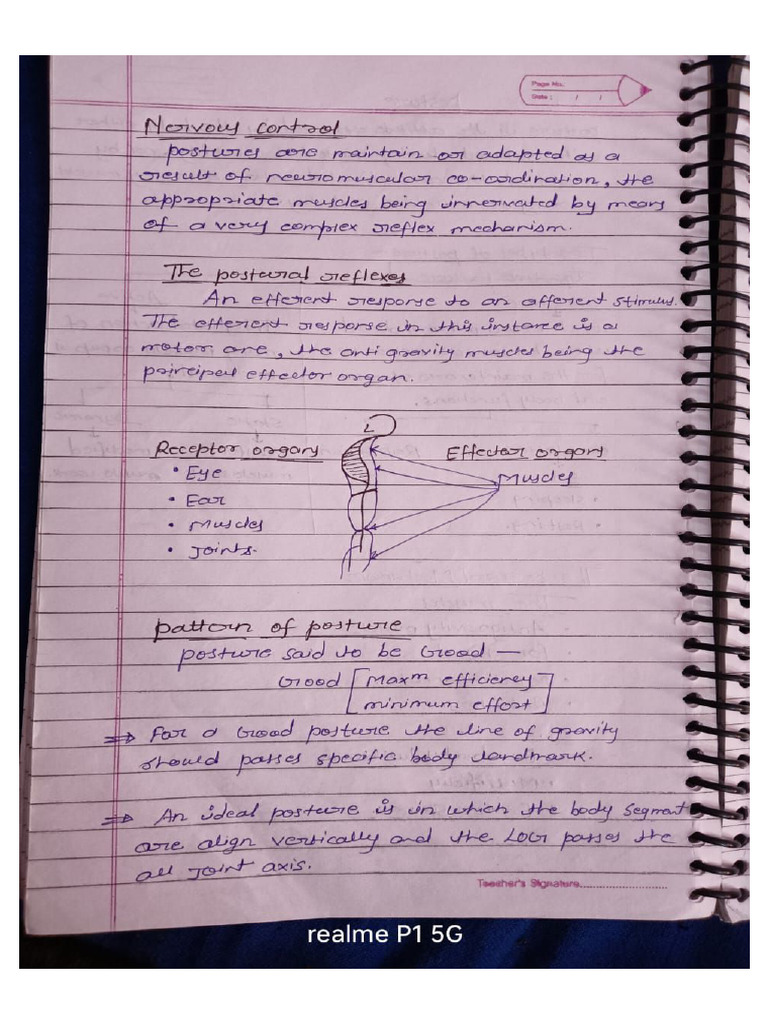 Page No.
Date : / /
Nervous control
postures are maintain or adapted as a
result of neuromuscular co-cordination, the
appropriate muscles being innervated by means
of a very complex reflex mechanism.
The postural reflexes
An efferent response to an afferent stimulus.
The efferent response in this instance is a
motor one, the anti gravity muscles being the
principal effector organ.
Receptor organs
Effector organs
• Eye
Muscles
• Ear
• Muscles
• Joints.
pattern of posture
posture said to be Good —
Good [Maxm efficiency]
[minimum effort]
⇒ For a Good posture the line of gravity
should passes specific body landmark.
⇒ An ideal posture is in which the body segment
are align vertically and the LOG passes the
all joint axis.
Teacher's Signature
realme P1 5G